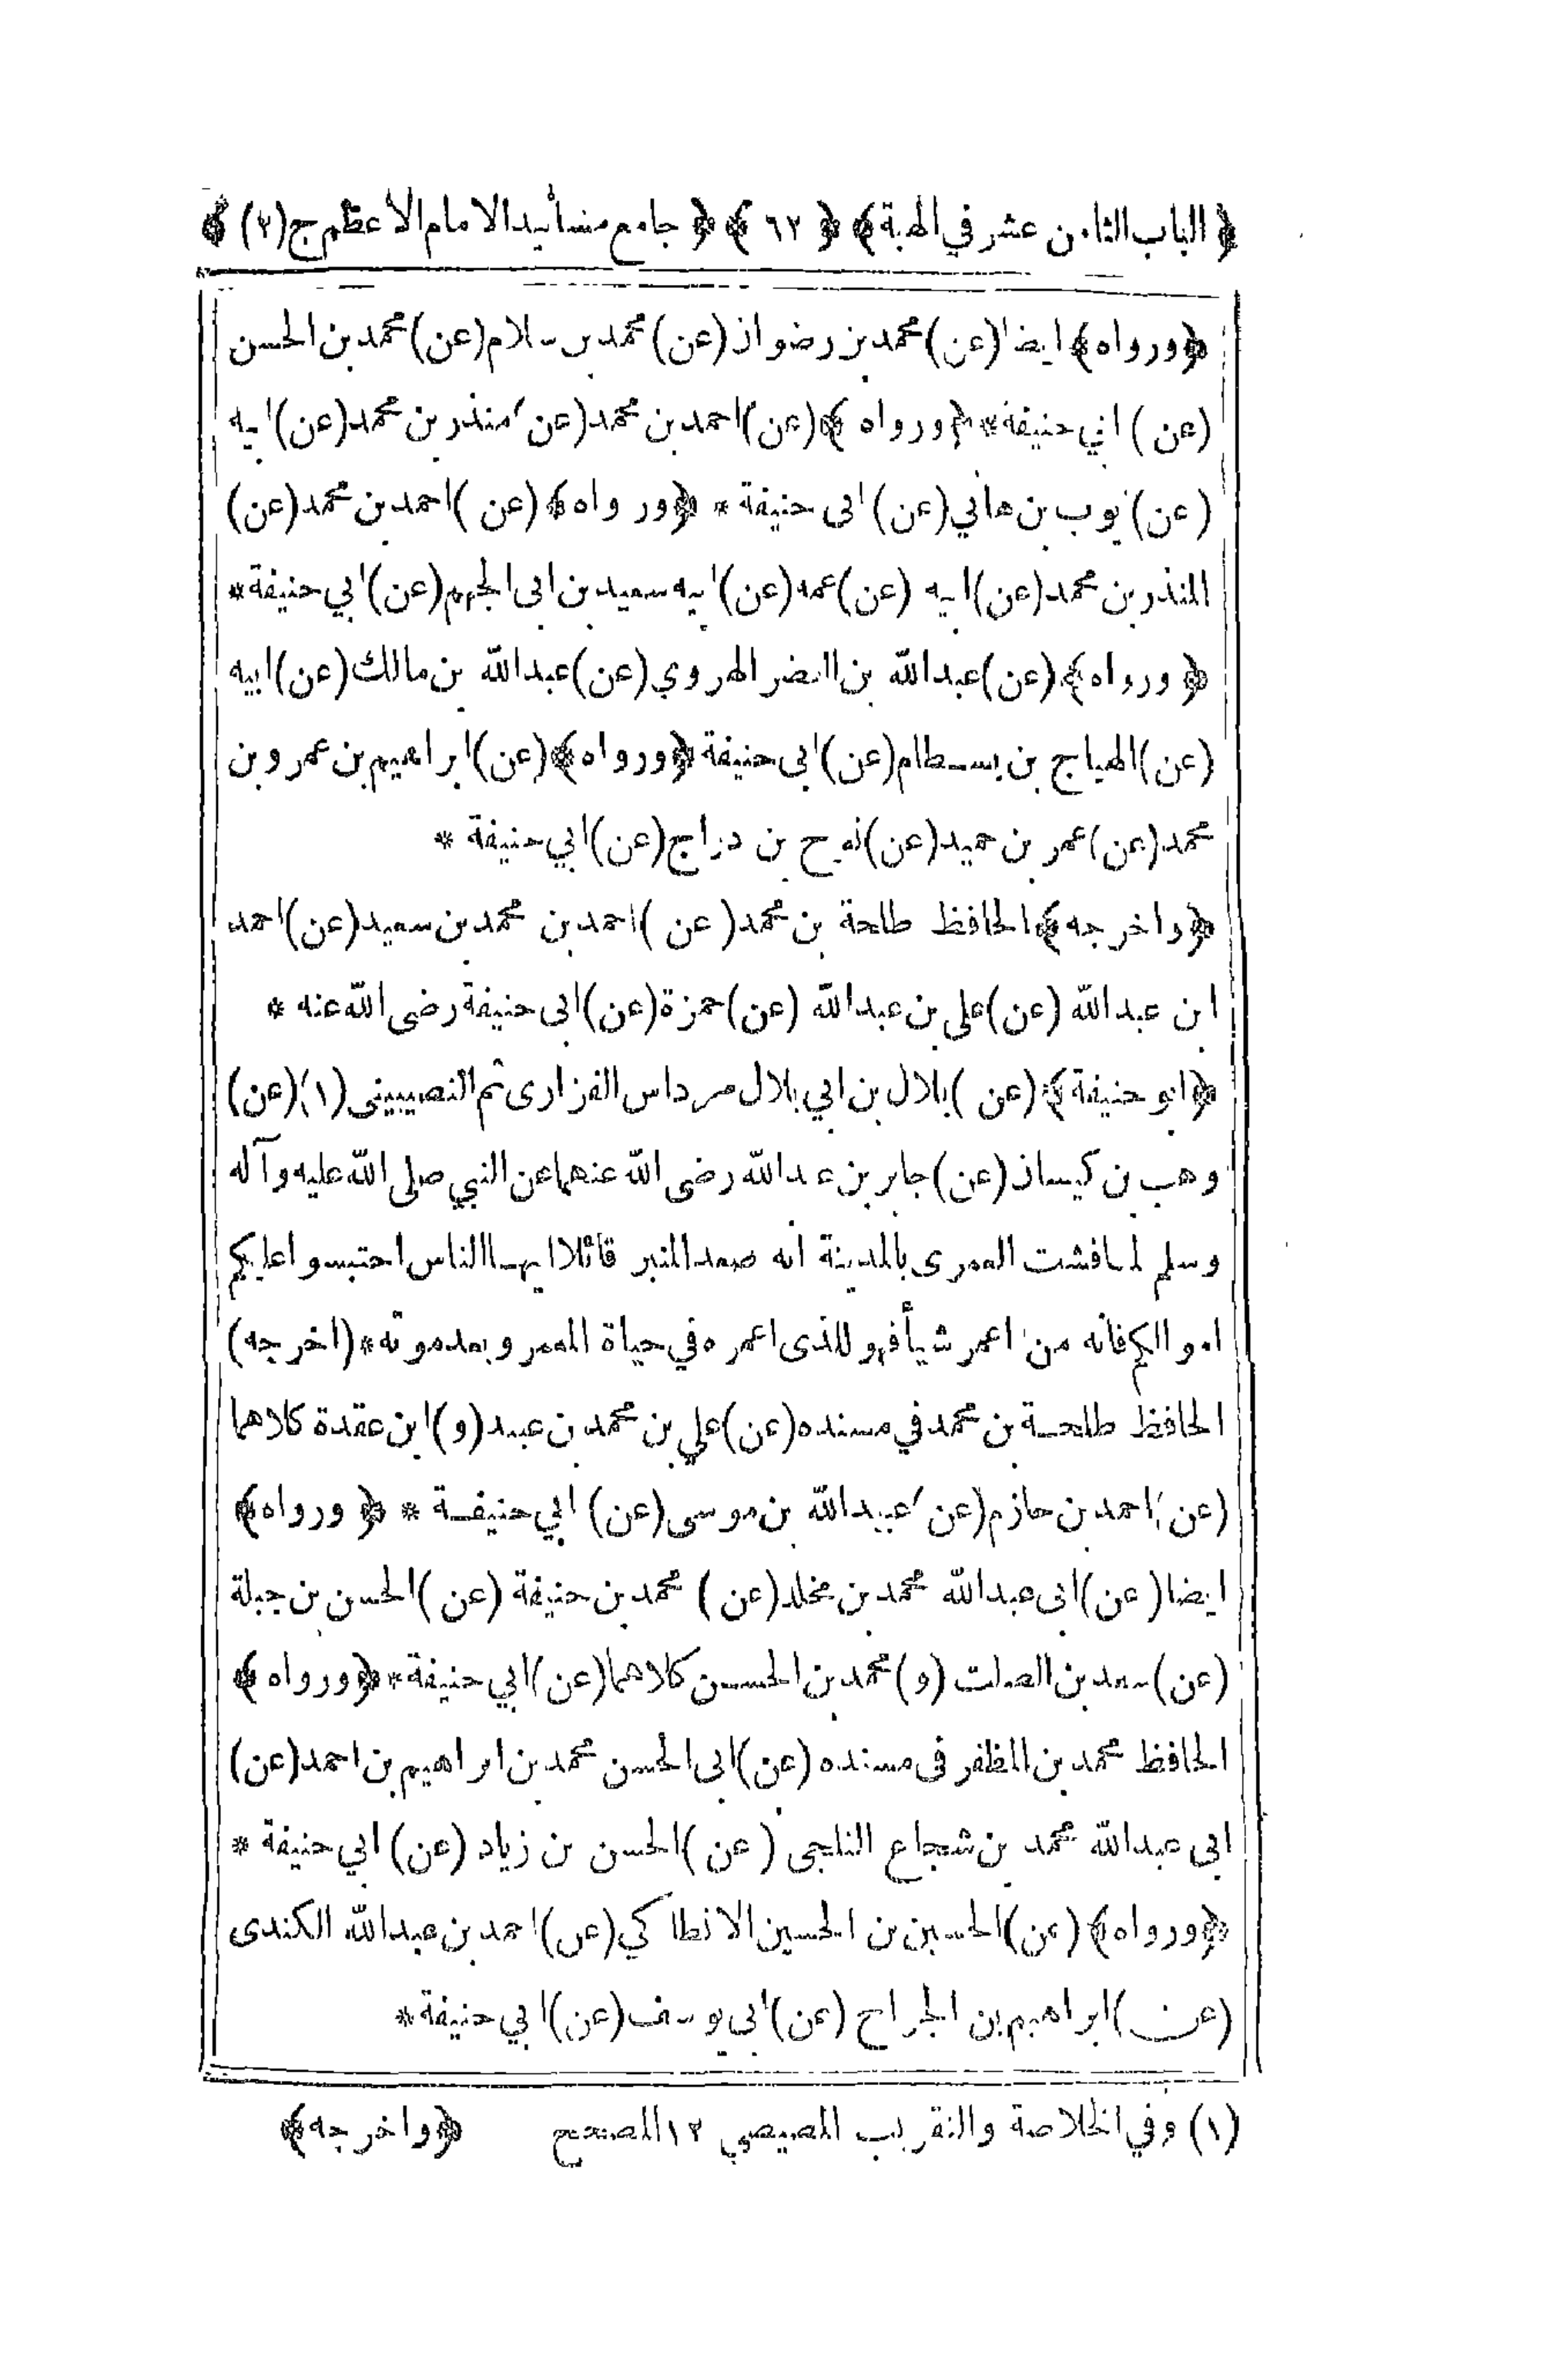 ﴿ الباب الثامن عشر في الهبة﴾ ﴿ ٦٢ ﴾ ﴿ جامع مسانيد الامام الأعظم ج(٢) ﴾
﴿ورواه﴾ ايضا (عن) محمد بن رضوان (عن) محمد بن سلام (عن) محمد بن الحسن
(عن) ابي حنيفة * ﴿ورواه ﴾ (عن) احمد بن محمد (عن) منذر بن محمد (عن) ابيه
(عن) ايوب بن هاني (عن) ابى حنيفة * ﴿ورواه﴾ (عن) احمد بن محمد (عن)
المنذر بن محمد (عن) ابيه (عن) عمه (عن) ابيه سعيد بن ابى الجهم (عن) ابي حنيفة *
﴿ ورواه﴾ (عن) عبدالله بن النضر الهروي (عن) عبدالله بن مالك (عن) ابيه
(عن) الهياج بن بسطام (عن) ابى حنيفة ﴿ورواه﴾ (عن) ابراهيم بن عمرو بن
محمد (عن) عمر بن حميد (عن) نوح بن دراج (عن) ابي حنيفة *
﴿واخرجه﴾ الحافظ طلحة بن محمد (عن) احمد بن محمد بن سعيد (عن) احمد
ابن عبدالله (عن) على بن عبدالله (عن) حمزة (عن) ابى حنيفة رضى الله عنه *
﴿ابو حنيفة﴾ (عن) بلال بن ابي بلال مرداس الفزارى ثم النصيبينى (١) (عن)
وهب بن كيسان (عن) جابر بن عبدالله رضى الله عنهما عن النبي صلى الله عليه وآله
وسلم لما فشت العمرى بالمدينة انه صعد المنبر قائلا ايها الناس احتبسوا عليكم
اموالكم فانه من اعمر شيأ فهو للذى اعمره في حياة المعمر وبعد موته * (اخرجه)
الحافظ طلحة بن محمد في مسنده (عن) علي بن محمد بن عبيد (و) ابن عقدة كلاهما
(عن) احمد بن حازم (عن) عبيدالله بن موسى (عن) ابي حنيفة * ﴿ ورواه﴾
ايضا (عن) ابى عبدالله محمد بن مخلد (عن) محمد بن حنيفة (عن) الحسن بن جبلة
(عن) سعد بن الصلت (و) محمد بن الحسن كلاهما (عن) ابي حنيفة * ﴿ورواه ﴾
الحافظ محمد بن المظفر فى مسنده (عن) ابى الحسن محمد بن ابراهيم بن احمد (عن)
ابى عبدالله محمد بن شجاع الثلجى (عن) الحسن بن زياد (عن) ابي حنيفة *
﴿ورواه﴾ (عن) الحسين بن الحسين الانطاكي (عن) احمد بن عبدالله الكندى
(عن) ابراهيم بن الجراح (عن) ابى يوسف (عن) ابي حنيفة *
(١) وفي الخلاصة والتقريب المصيصي ١٢ المصحح ﴿واخرجه﴾